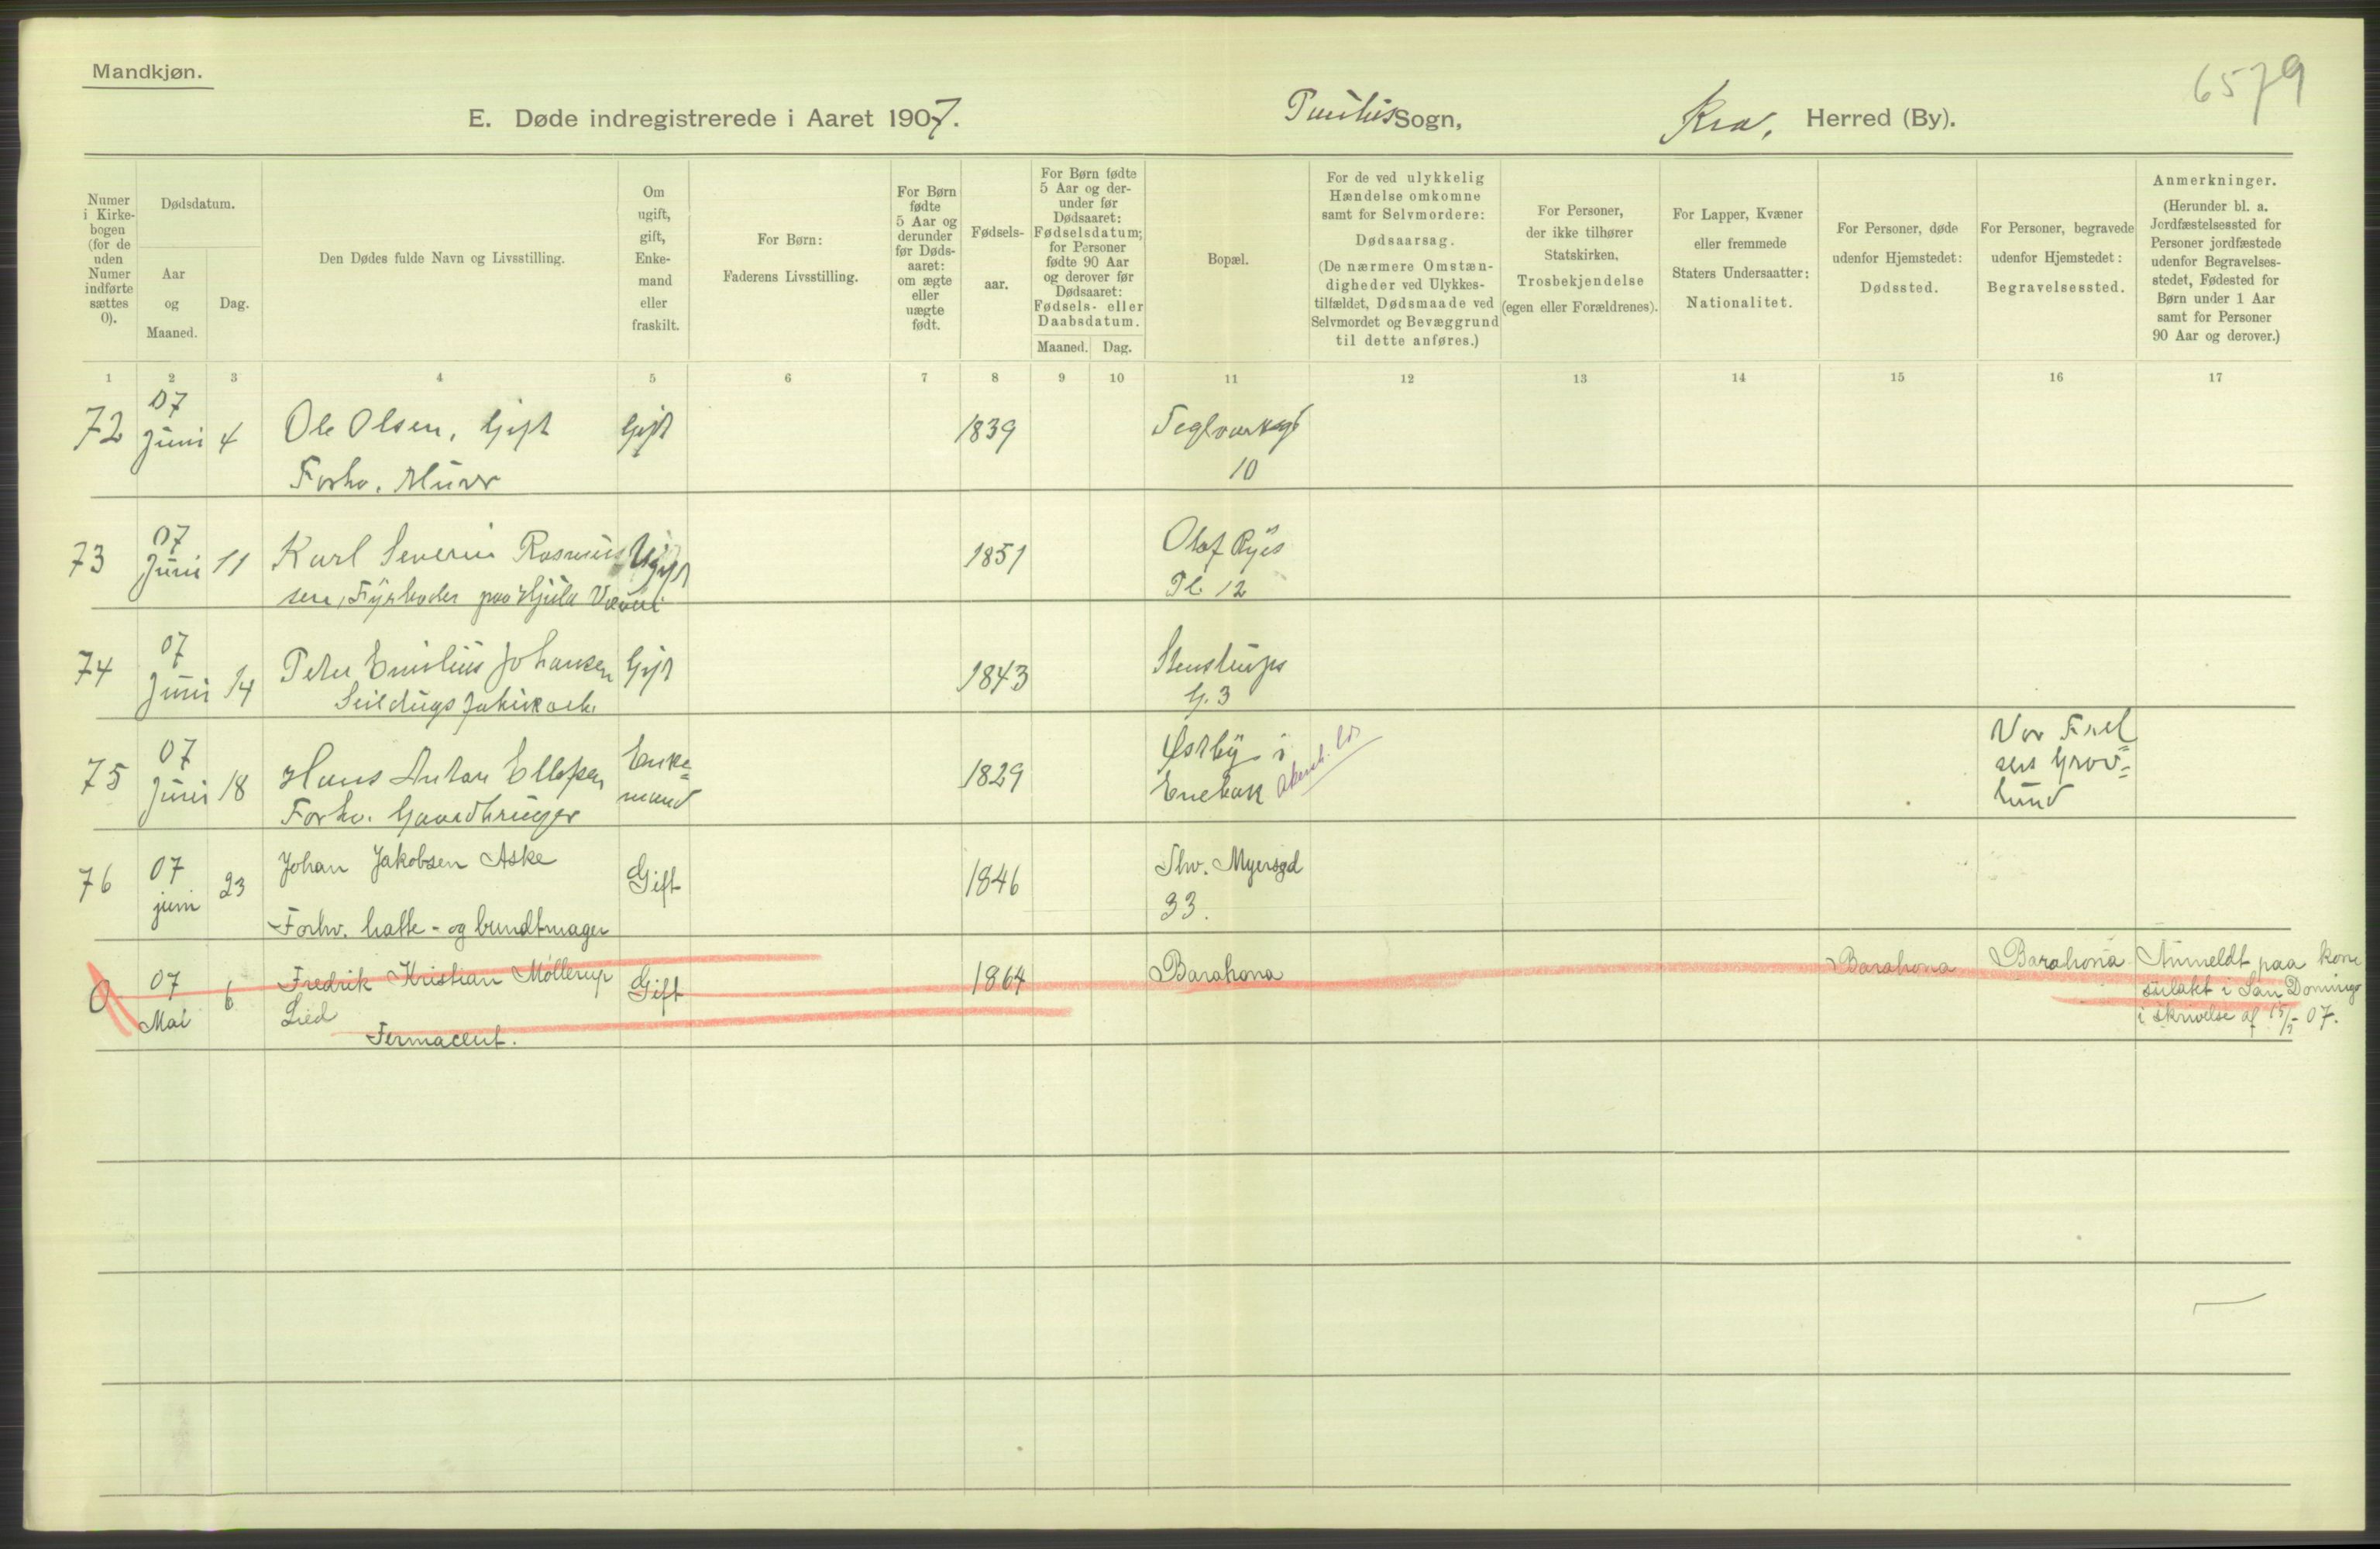 Mandkjøn.
6579
E. Døde indregistrerede i Aaret 1907. Paulus Sogn, Kra, Herred (By).
Numer
i Kirke-
bogen
(for de
uden
Numer
indførte
sættes
0).
Dødsdatum.
Aar
og
Maaned.
Dag.
Den Dødes fulde Navn og Livsstilling.
Om
ugift,
gift,
Enke-
mand
eller
fraskilt.
For Børn:
Faderens Livsstilling.
For Børn
fødte
5 Aar og
derunder
før Døds-
aaret:
om ægte
eller
uægte
født.
Fødsels-
aar.
For Børn fødte
5 Aar og der-
under før
Dødsaaret:
Fødselsdatum;
for Personer
fødte 90 Aar
og derover før
Dødsaaret:
Fødsels- eller
Daabsdatum.
Maaned. Dag.
Bopæl.
For de ved ulykkelig
Hændelse omkomne
samt for Selvmordere:
Dødsaarsag.
(De nærmere Omstæn-
digheder ved Ulykkes-
tilfældet, Dødsmaade ved
Selvmordet og Bevæggrund
til dette anføres.)
For Personer,
der ikke tilhører
Statskirken,
Trosbekjendelse
(egen eller Forældrenes).
For Lapper, Kvæner
eller fremmede
Staters Undersaatter:
Nationalitet.
For Personer, døde
udenfor Hjemstedet:
Dødssted.
For Personer, begravede
udenfor Hjemstedet:
Begravelsessted.
Anmerkninger.
(Herunder bl. a.
Jordfæstelsessted for
Personer jordfæstede
udenfor Begravelses-
stedet, Fødested for
Børn under 1 Aar
samt for Personer
90 Aar og derover.)
1 2 3 4 5 6 7 8 9 10 11 12 13 14 15 16 17
72 07 Juni 4 Ole Olsen, Gift Gift 1839 Teglverksgt
Forhv. Murer 10
73 07 Juni 11 Karl Severin Rasmus Ugift 1851 Olaf Ryes
sen, Fyrbøder paa Hjula Væveri Pl. 12
74 07 Juni 14 Peter Emilius Johansen Gift 1843 Stenstrups
Seildugsfabrikarb. G. 3
75 07 Juni 18 Hans Anton Ellefsen Enke= 1829 Østby i Vor Frel
Forhv. Gaardbruger mand Enebak Akersh. sers Grav=
lund
76 07 juni 23 Johan Jakobsen Aske Gift 1846 Thv. Myersgd
Forhv. hatte- og bundtmager 33.
0 07 Mai 6 Fredrik Kristian Møllerup Gift 1864 Barahona Barahona Barahona Anmeldt paa kon
Lied sulatet i San Domingo
Farmaceut. i skrivelse af 15/5 07.